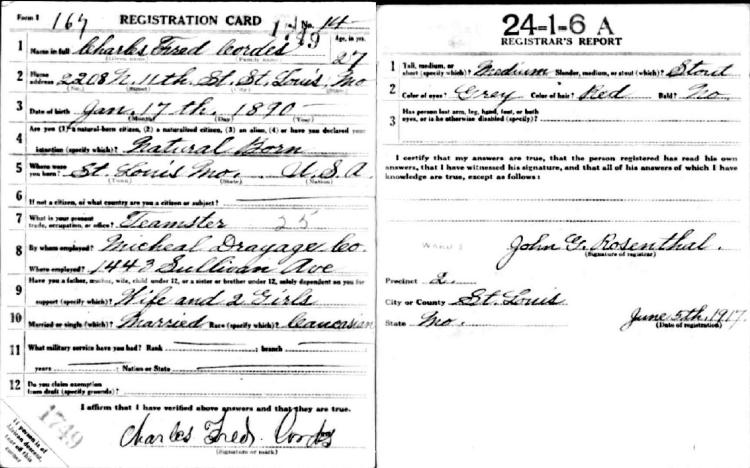 Form 1 164 REGISTRATION CARD No. 14
1749
1 Name in full Charles Fred Cordes Age, in yrs. 27
(Given name) (Family name)
2 Home address 2208 N. 11th St. St. Louis Mo
(No.) (Street) (City) (State)
3 Date of birth Jan. 17th 1890
(Month) (Day) (Year)
4 Are you (1) a natural-born citizen, (2) a naturalized citizen, (3) an alien, (4) or have you declared your
intention (specify which)? Natural Born
5 Where were you born? St. Louis Mo. U.S.A
(Town) (State) (Nation)
6 If not a citizen, of what country are you a citizen or subject?
7 What is your present trade, occupation, or office? Teamster 25
8 By whom employed? Micheal Drayage Co.
Where employed? 1443 Sullivan Ave
9 Have you a father, mother, wife, child under 12, or a sister or brother under 12, solely dependent on you for
support (specify which)? Wife and 2 Girls
10 Married or single (which)? Married Race (specify which)? Caucasian
11 What military service have you had? Rank ; branch
years ; Nation or State
12 Do you claim exemption from draft (specify grounds)?
I affirm that I have verified above answers and that they are true.
1749
If person is of
African descent,
tear off this
corner
Charles Fred. Cordes
(Signature or mark)
24-1-6 A
REGISTRAR'S REPORT
1 Tall, medium, or short (specify which)? Medium Slender, medium, or stout (which)? Stout
2 Color of eyes? Grey Color of hair? Red Bald? No
3 Has person lost arm, leg, hand, foot, or both
eyes, or is he otherwise disabled (specify)?
I certify that my answers are true, that the person registered has read his own
answers, that I have witnessed his signature, and that all of his answers of which I have
knowledge are true, except as follows:
John G. Rosenthal.
(Signature of registrar)
Precinct 2.
City or County St. Louis
State Mo. June 5th, 1917
(Date of registration)